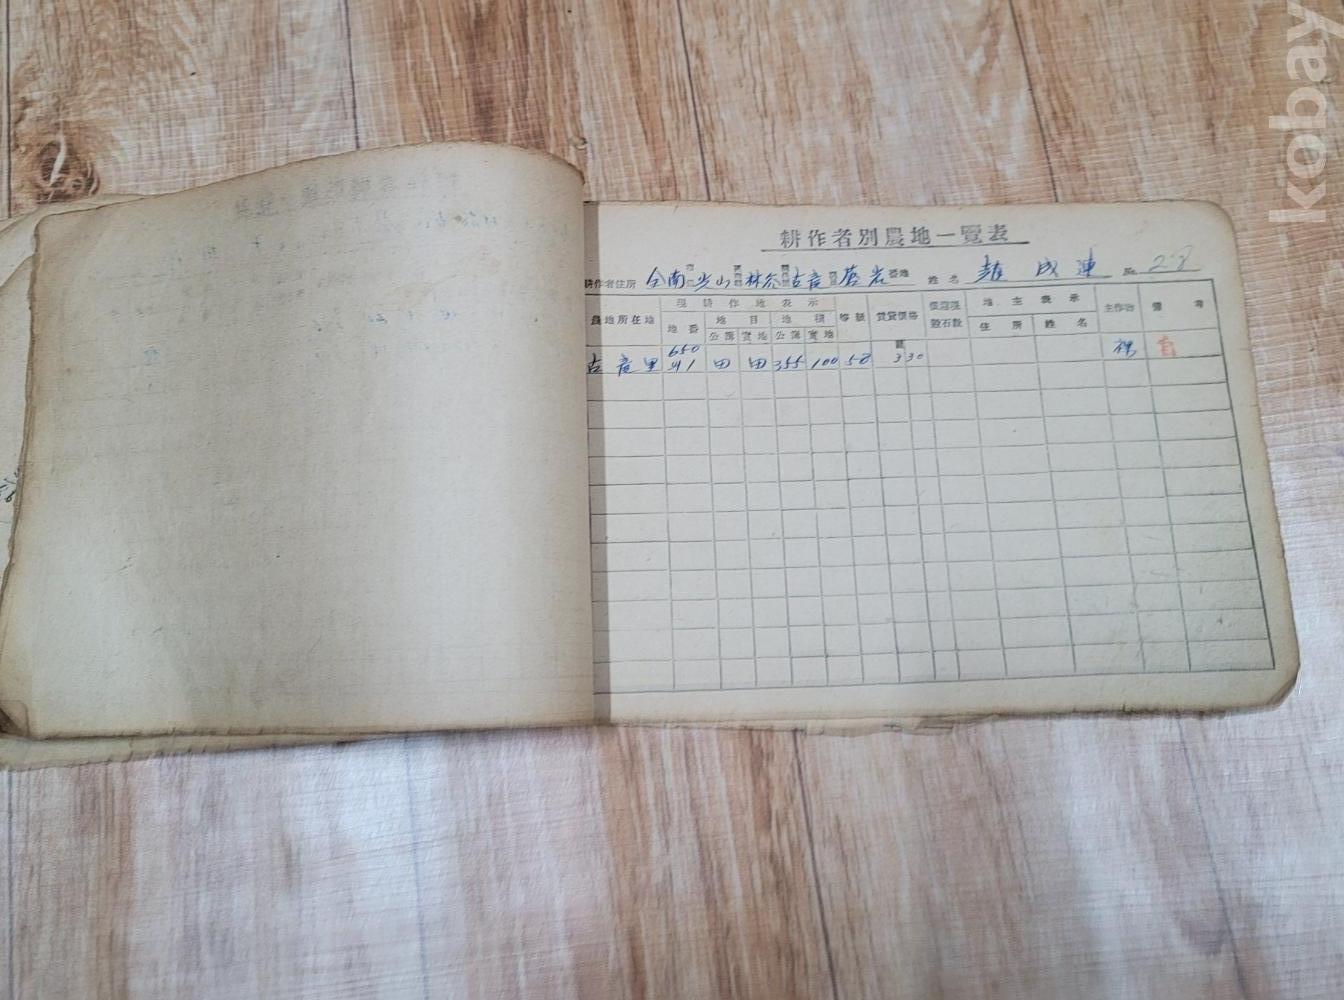 kobay
耕作者別農地一覽表
耕作者住所 全南 光山 林谷 古 番地 姓名 趙 成 連 No.
現耕作地表示 地主表示
農地所在地 地番 地目 地積 等級 賃貸價格 住所 姓名 主作物 備考
公簿 實地 公簿 實地
650
古 里 91 田 田 355 100 58 3 30 裸 自